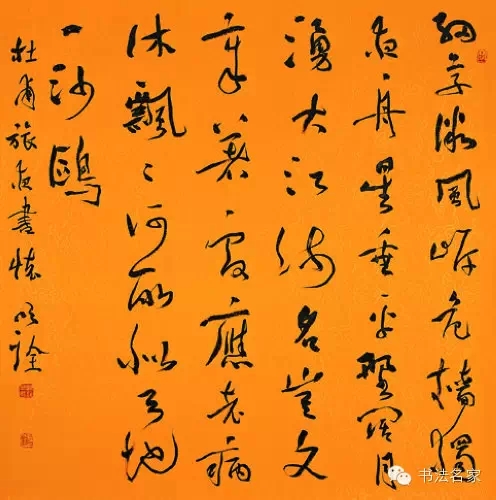 細草微風岸危檣獨
夜舟星垂平野闊月
湧大江流名豈文
章著官應老病
休飄々何所似天地
一沙鷗
杜甫旅夜書懷 明詮
书法名家